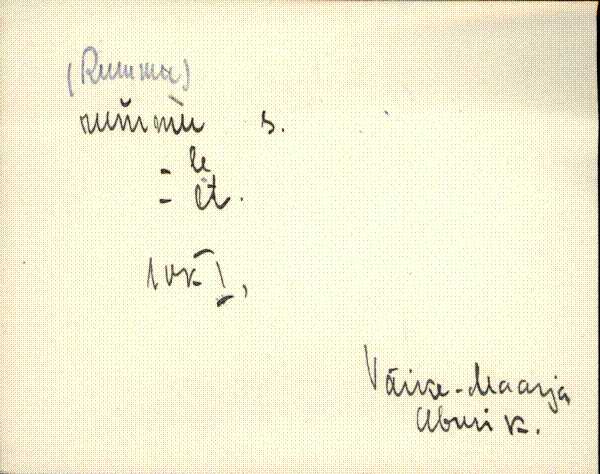 (Rumma)
rum̆mù s.
= le
= lt.
1 vk I,
Väike-Maarja
Aburi k.